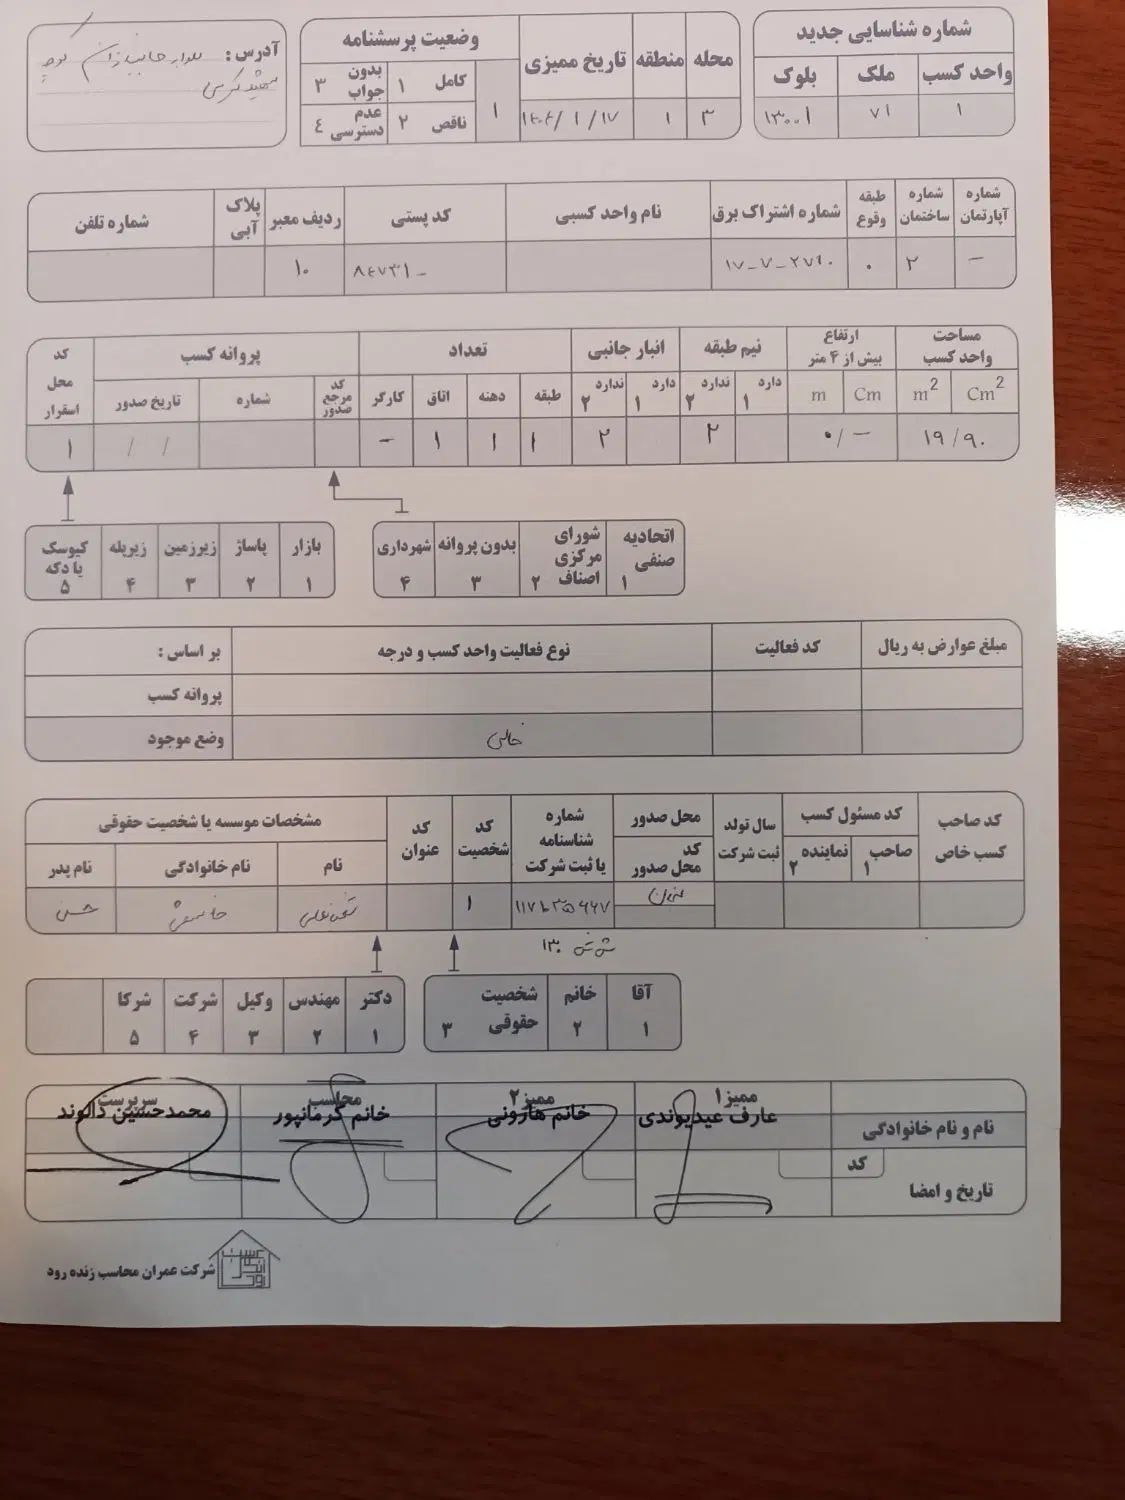 شماره شناسایی جدید
واحد کسب ملک بلوک
۱ ۷۱ ۱۳۰۰۱
محله منطقه تاریخ ممیزی
۳ ۱ ۱۴۰۴/۱/۱۷
وضعیت پرسشنامه
کامل ۱ بدون جواب ۳
ناقص ۲ عدم دسترسی ٤
۱
آدرس : بلوار جانبازان کوچه
شهید
شماره آپارتمان شماره ساختمان طبقه وقوع شماره اشتراک برق نام واحد کسبی کد پستی ردیف معبر پلاک آبی شماره تلفن
- ۲ ۰ ۱۷-۷-۲۷۶۰ ۸۴۷۳۱- ۱۰
مساحت واحد کسب ارتفاع بیش از ۴ متر نیم طبقه انبار جانبی تعداد پروانه کسب کد محل اسقرار
Cm2 m2 Cm m دارد ۱ ندارد ۲ دارد ۱ ندارد ۲ طبقه دهنه اتاق کارگر کد مرجع صدور شماره تاریخ صدور
۱۹/۹۰ ۰/- ۲ ۲ ۱ ۱ ۱ - / / ۱
اتحادیه صنفی ۱ شورای مرکزی اصناف ۲ بدون پروانه ۳ شهرداری ۴
بازار ۱ پاساژ ۲ زیرزمین ۳ زیرپله ۴ کیوسک یا دکه ۵
مبلغ عوارض به ریال کد فعالیت نوع فعالیت واحد کسب و درجه بر اساس :
پروانه کسب
خالی وضع موجود
کد صاحب کسب خاص کد مسئول کسب سال تولد ثبت شرکت محل صدور شماره شناسنامه یا ثبت شرکت کد شخصیت کد عنوان مشخصات موسسه یا شخصیت حقوقی
صاحب ۱ نماینده ۲ کد محل صدور نام نام خانوادگی نام پدر
۱ حسن
ش ش ۱۳۰
آقا ۱ خانم ۲ شخصیت حقوقی ۳
دکتر ۱ مهندس ۲ وکیل ۳ شرکت ۴ شرکا ۵
ممیز۱ ممیز۲ محاسب سرپرست
نام و نام خانوادگی عارف عیدیوندی خانم هارونی خانم کرمانپور محمدحسین دالوند
کد
تاریخ و امضا
شرکت عمران محاسب زنده رود